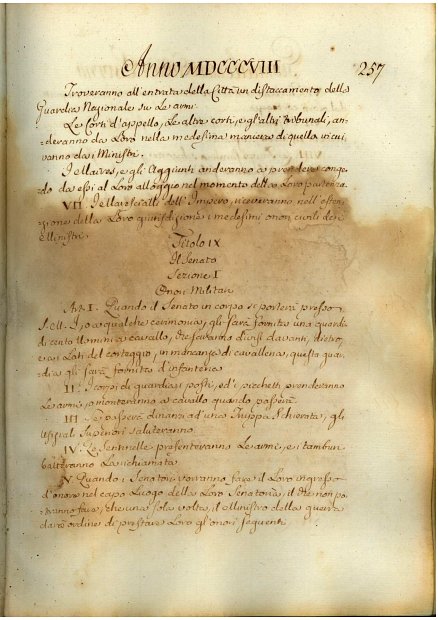 Anno MDCCCVIII
257
Troveranno all'entrata della Città un distaccamento della
Guardia Nazionale su Le armi.
Le Corti d'appello, Le altre corti, e gli altri Tribunali, an-
deranno da Loro nella medesima maniera di quella in cui
vanno dai Ministri.
I Maires, e gli Aggiunti anderanno a prendere conge-
do da essi al Loro alloggio nel momento della Loro partenza.
VII. I Marescialli dell'Impero, riceveranno nell'esten-
sione della Loro giurisdizione i medesimi onori civili dei
Ministri.
Titolo IX
Il Senato
Sezione I
Onori Militari
Art. I. Quando il Senato in corpo si porterà presso
S. M. I., o a qualche cerimonia, gli sarà fornita una guardia
di cento Uomini a cavallo, che saranno divisi davanti, dietro,
e ai Lati del corteggio, in mancanza di cavalleria, questa guar-
dia gli sarà fornita d'infanteria.
II. I corpi di guardia, i posti, ed i picchetti prenderanno
Le armi, o monteranno a cavallo quando passerà.
III. Se passerà dinanzi ad una Truppa Schierata, gli
Ufizjali Superiori saluteranno.
IV. Le Sentinelle presenteranno Le armi, e i tamburi
batteranno La richiamata.
V. Quando i Senatori vorranno fare il Loro ingresso
d'onore nel capo Luogo della Loro Senatoria, il che non po-
tranno fare, che una sola volta, il Ministro della guerra
darà ordine di prestare Loro gli onori seguenti